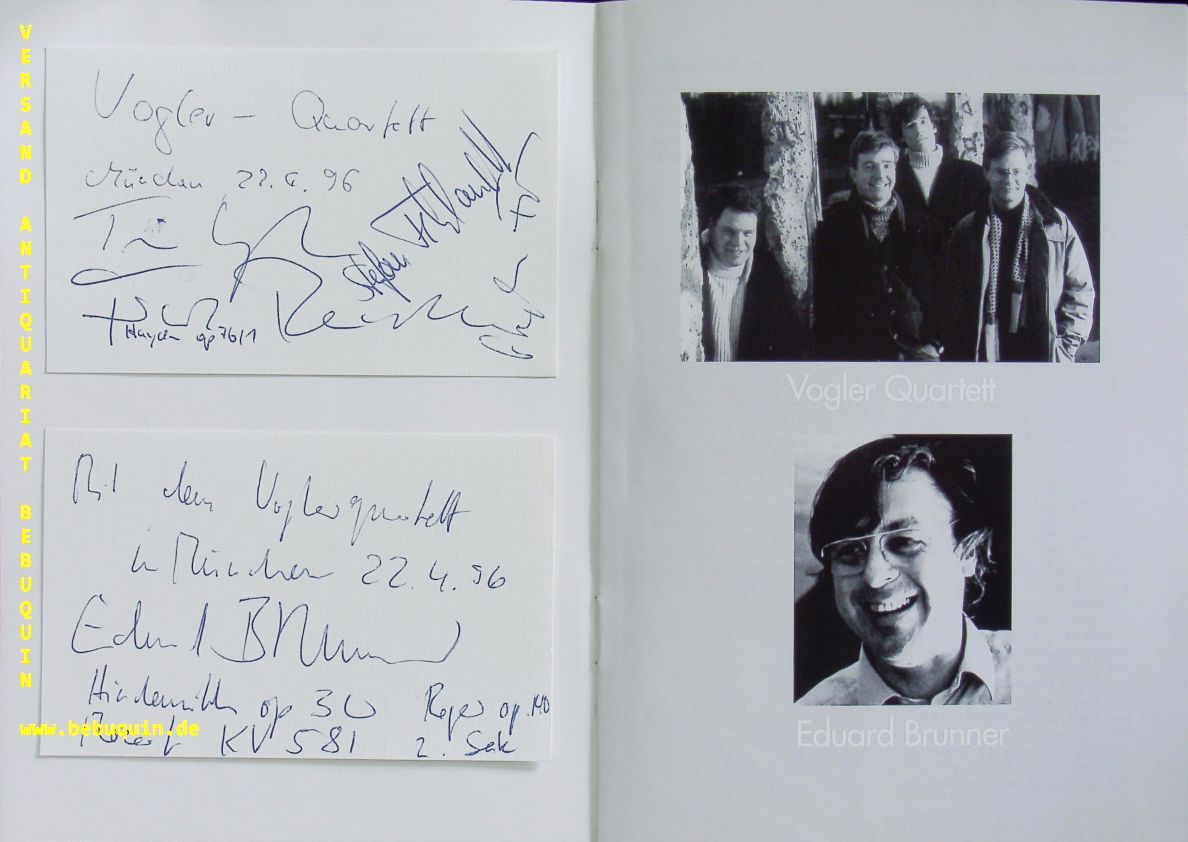 VERSAND ANTIQUARIAT BEBUQUIN
www.bebuquin.de
Vogler - Quartett
München 22.4.96
Tim
Stefan Fehlandt
Frank Reinecke
Haydn op 76/1
Mit dem Voglerquartett
in München 22.4.96
Eduard Brunner
Hindemith op 30 Reger op. 140
Mozart KV 581 2. Satz
Vogler Quartett
Eduard Brunner